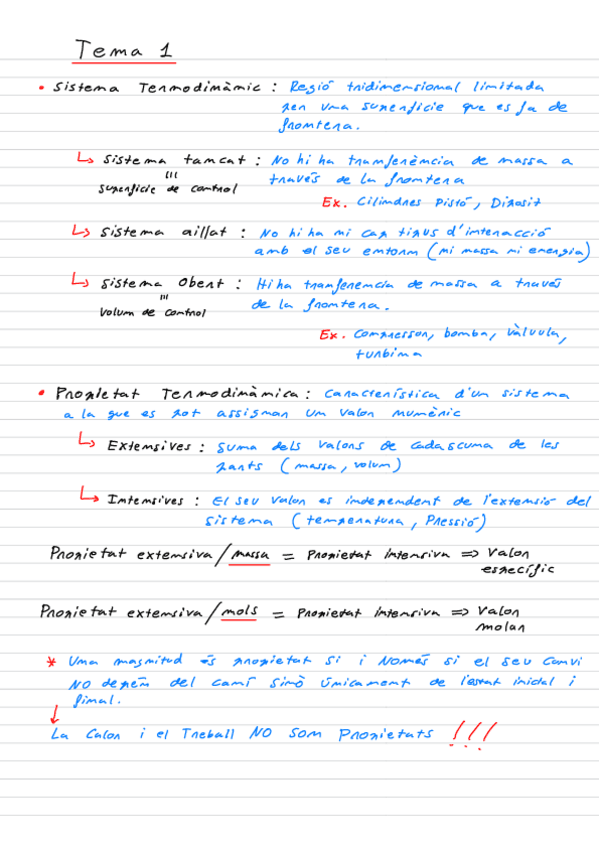 Tema 1
• Sistema Termodinàmic : Regió tridimensional limitada
per una superfície que es fa de
frontera.
↳ Sistema tancat : No hi ha transferència de massa a
≡ través de la frontera
superfície de control
Ex. Cilindres Pistó, Dipòsit
↳ Sistema aïllat : No hi ha ni cap tipus d'interacció
amb el seu entorn (ni massa ni energia)
↳ Sistema Obert : Hi ha transferencia de massa a través
≡ de la frontera.
Volum de control
Ex. Compressor, bomba, vàlvula,
turbina
• Propietat Termodinàmica : Característica d'un sistema
a la que es pot assignar un valor numèric
↳ Extensives : Suma dels valors de cadascuna de les
parts (massa, volum)
↳ Intensives : El seu valor es independent de l'extensió del
sistema (temperatura, Pressió)
Propietat extensiva / massa = Propietat intensiva ⇒ Valor
específic
Propietat extensiva / mols = Propietat intensiva ⇒ Valor
molar
* Una magnitud és propietat si i Només si el seu canvi
NO depèn del camí sinò únicament de l'estat inicial i
final.
↓
La Calor i el Treball NO són Propietats !!!